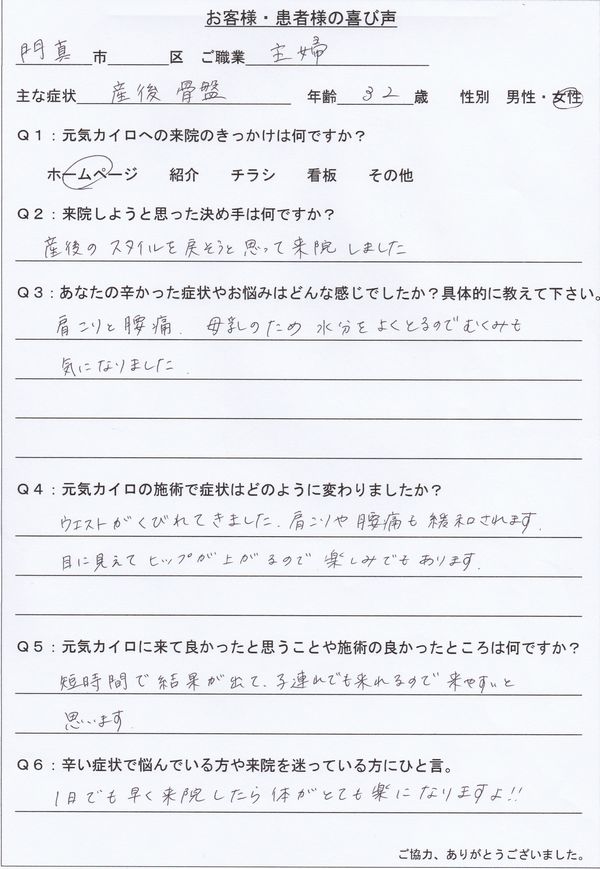 お客様・患者様の喜び声
門真市 区 ご職業 主婦
主な症状 産後 骨盤 年齢 32 歳 性別 男性・女性
Q1：元気カイロへの来院のきっかけは何ですか？
ホームページ 紹介 チラシ 看板 その他
Q2：来院しようと思った決め手は何ですか？
産後の スタイルを戻そうと思って来院 しました
Q3：あなたの辛かった症状やお悩みはどんな感じでしたか？具体的に教えて下さい。
肩こりと腰痛. 母乳のため 水分をよくとるのでむくみも
気になりました.
Q4：元気カイロの施術で症状はどのように変わりましたか？
ウエストがくびれてきました. 肩こりや 腰痛も 緩和されます.
目に見えて ヒップが上がるので 楽しみでもあります.
Q5：元気カイロに来て良かったと思うことや施術の良かったところは何ですか？
短時間で結果が出て、子連れでも来れるので来やすいと
思います.
Q6：辛い症状で悩んでいる方や来院を迷っている方にひと言。
1日でも早く来院したら体がとても楽になりますよ!!
ご協力、ありがとうございました。